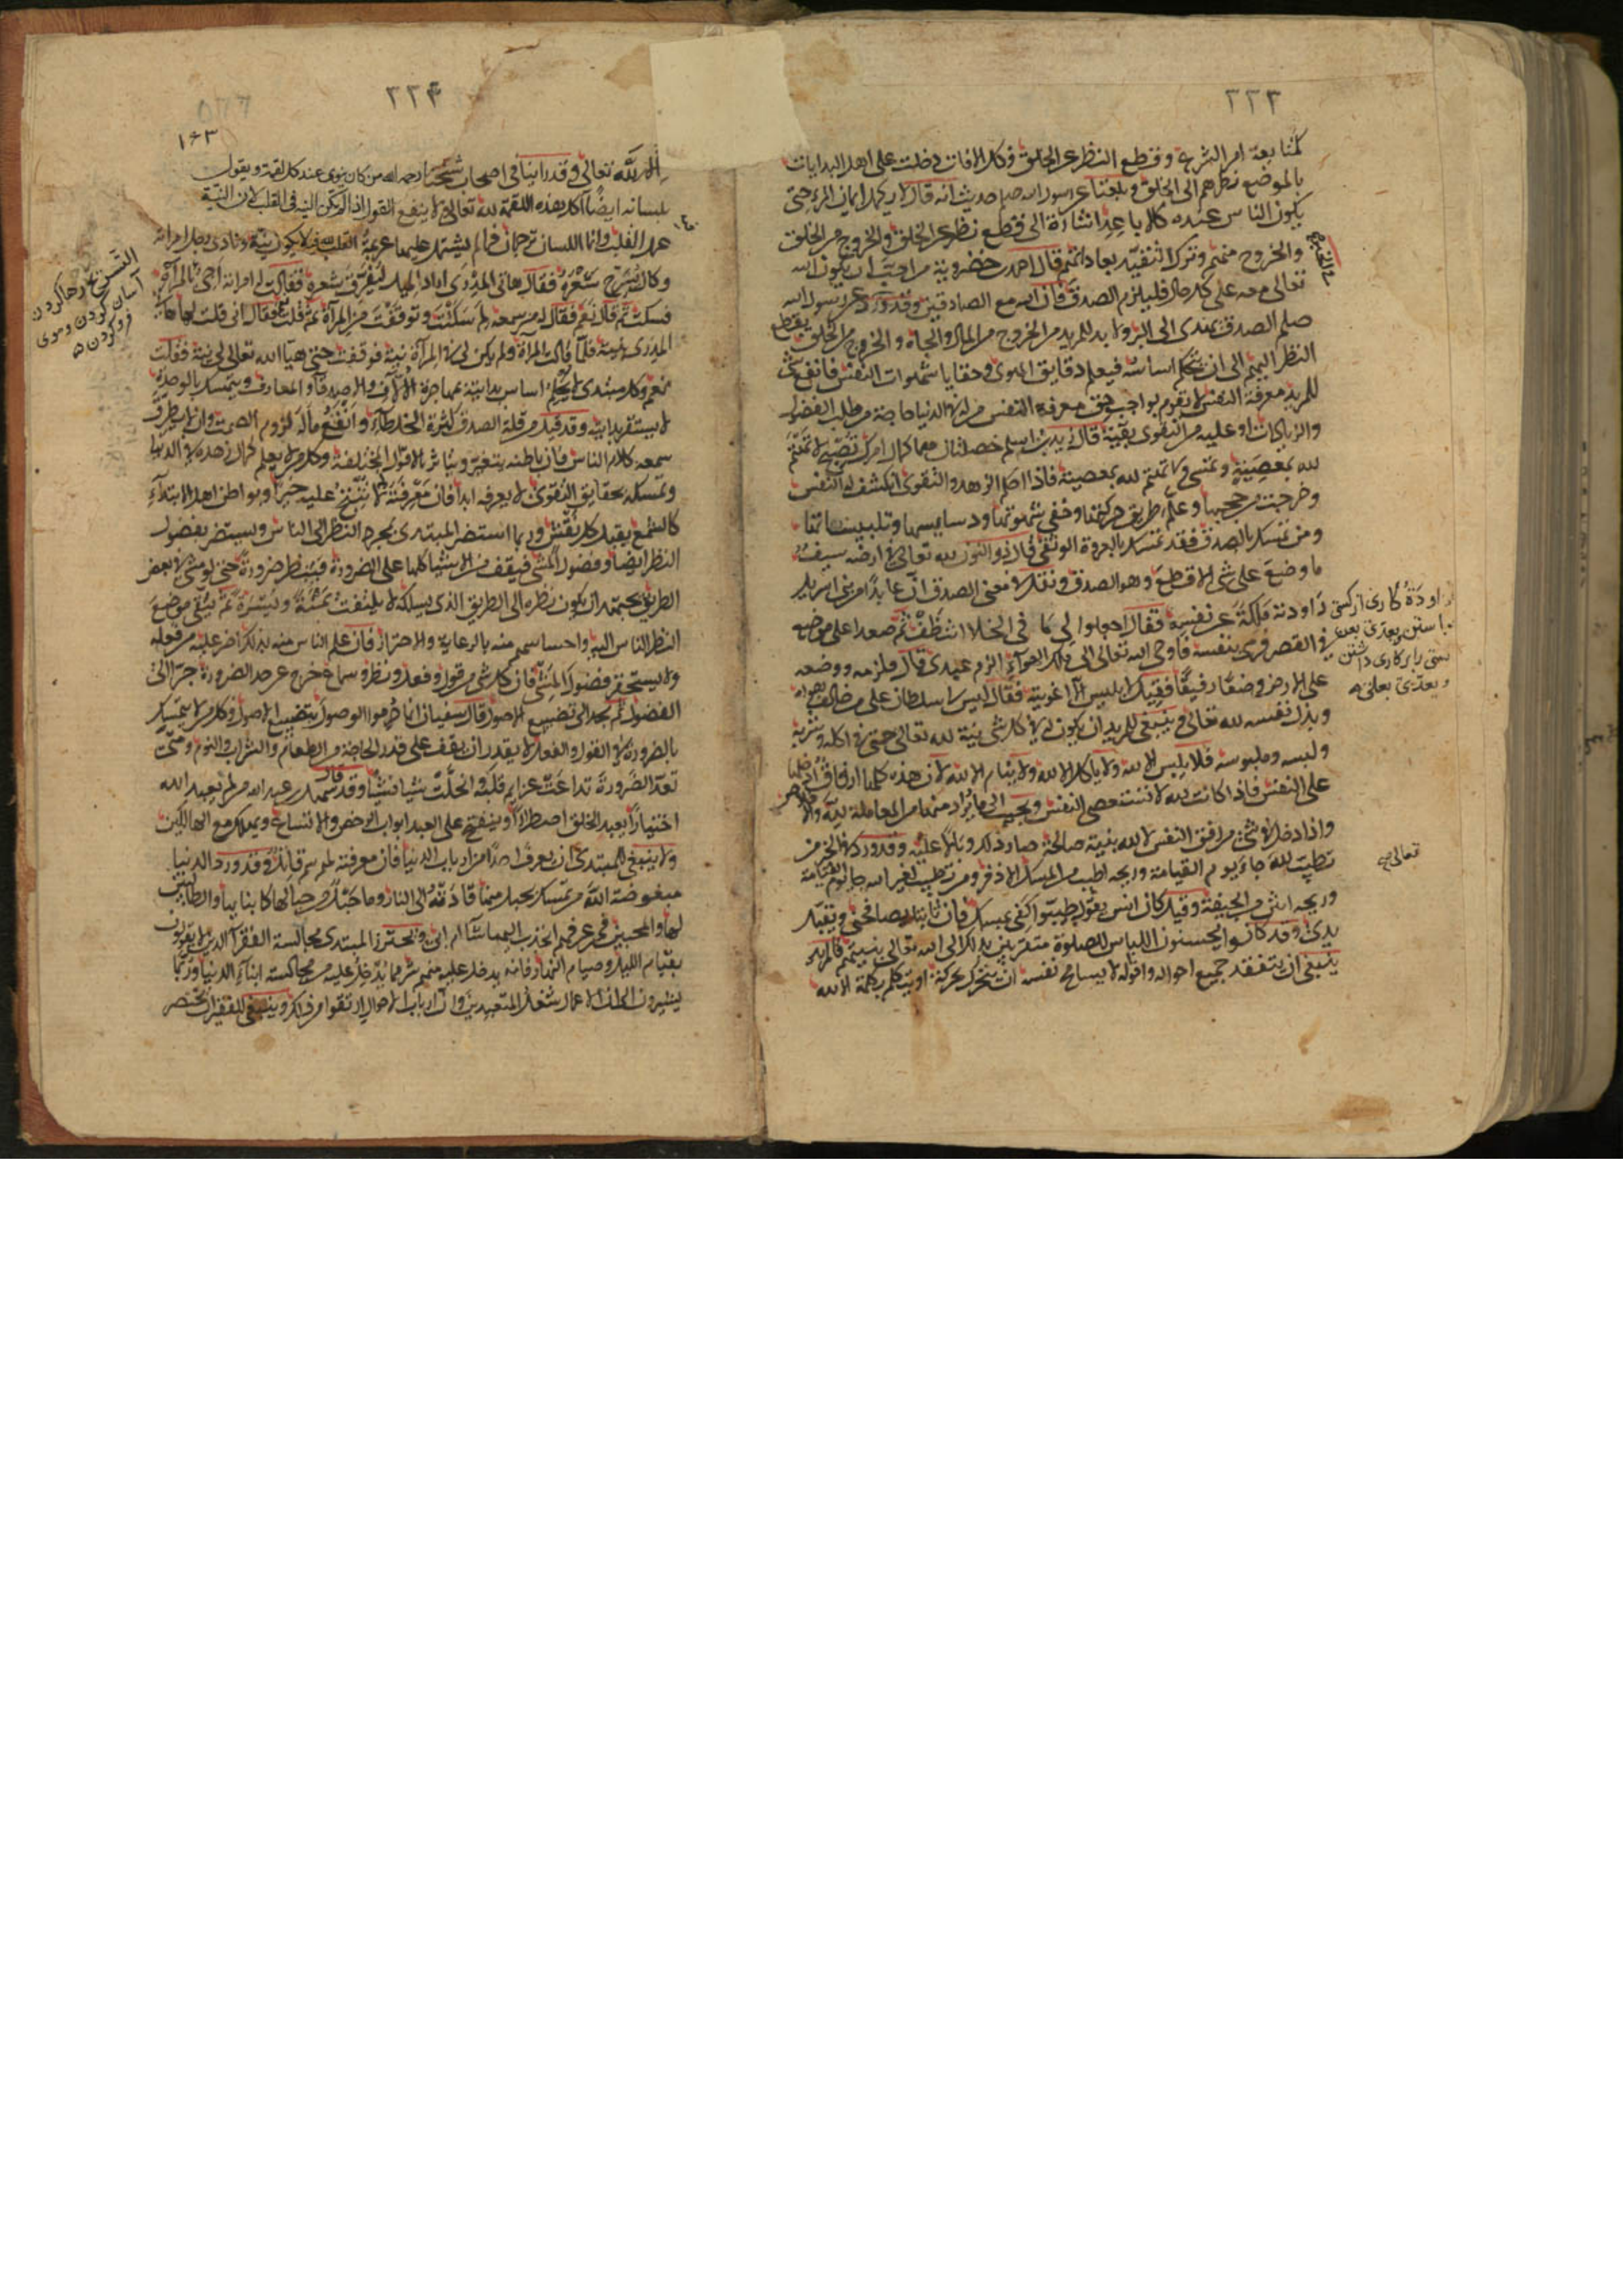 ٢٢٣
لمتابعة امر الشرع وقطع النظر عن الخلق فكل الافات دخلت على اهل البدايات
بالموضع نظرهم الى الخلق وبلغنا عن رسول الله صلم حديث انه قال لا يكمل ايمان المرء حتى
يكون الناس عنده كالاباعر اشارة الى قطع نظر عن الخلق والخروج من الخلق
والخروج منهم وترك التقيد بعاداتهم قال احمد بن خضرويه من احب ان يكون الله
تعالى معه على كل حال فليلزم الصدق فان الله مع الصادقين وقد ورد عن رسول الله
صلم الصدق يهدى الى البر ولا بد للمريد من الخروج من المال والجاه والخروج من الخلق بقطع
النظر اليهم الى ان يحكم اساسه فيعلم دقايق الهوى وخفايا شهوات النفس فانفع شى
للمريد معرفة النفس ولا يقوم بواجب حق معرفة النفس من له فى الدنيا حاجة من طلب الفضول
والزيادات او عليه من الهوى بقية قال زيد بن اسلم خصلتان هما كمال امرك تصبح لا تهم
لله بمعصية وتمسى ولا تهم لله بمعصية فاذا احكم الزهد والتقوى انكشف له النفس
وخرجت من حجبها وعلم طريق حركتها وخفى شهوتها ودسايسها وتلبيساتها
ومن تمسك بالصدق فقد تمسك بالعروة الوثقى قال ذو النون لله تعالى فى ارضه سيف
ما وضع على شى الا قطع وهو الصدق ونقل فى معنى الصدق ان عابدا من بنى اسرايل
راودته ملكة عن نفسه فقال اجعلوا لى ما فى الخلا اتنظف ثم صعد اعلى موضع
فى القصر فرمى بنفسه فاوحى الله تعالى الى ملك الهواء الزم عبدى قال فلزمه ووضعه
على الارض وضعا رفيقا فقيل لابليس الا اغويته فقال ليس لى سلطان على من خالف هواه
وبذل نفسه لله تعالى وينبغى للمريد ان يكون له فى كل شى نية لله تعالى حتى فى اكله وشربه
ولبسه وملبوسه فلا يلبس الا لله ولا ياكل الا لله ولا ينام الا لله لان هذه كلها ارفاق ادخلها
على النفس فاذا كانت لله لا تستعصى النفس وتجيب الى ما يراد منها من المعاملة لله والاخلاص
واذا دخل فى شى من رفق النفس لا لله بغير نية صالحة صار ذلك وبالا عليه وقد ورد فى الخبر من
تطيب لله جاء يوم القيامة وريحه اطيب من المسك الاذفر ومن تطيب لغير الله جا يوم القيامة
وريحه انتن من الجيفة وقيل كان انس يقول طيبوا كفى بمسك فان ثابتا يصافحنى ويقبل
يدى وقد كانوا يحسنون اللباس للصلوة متقربين بذلك الى الله تعالى بنيتهم فالمريد
ينبغى ان يتفقد جميع احواله واقواله ولا يسامح نفسه ان يتحرك بحركة او يتكلم بكلمة الا لله
تعالى
٢٢٤
١٤٣
لله تعالى وقد راينا فى اصحاب شيخنا رحمه الله من كان ينوى عند كل لقمة ويقول
بلسانه ايضا آكل هذه اللقمة لله تعالى ولا ينفع القول اذا لم تكن النية فى القلب لان النية
عمل القلب وانما اللسان ترجمان فما لم يشتمل عليها عزيمة القلب لله لا يكون نية ونادى رجل امراته
وكان يسرح شعره فقال هاتى المدرى اراد الميل ليفرق شعره فقالت له امراته اجى بالمرآة
فسكت ثم قال نعم فقال له من سمعه لم سكت وتوقفت عن المرآة ثم قلت نعم فقال انى قلت لها هات
المدرى بنية فلما قالت المرآة ولم يكن لى فى المرآة نية فوقفت حتى هيأ الله تعالى لى نية فقلت
نعم وكل مبتدى لا يحكم اساس بدايته بمهاجرة الالاف والاصدقا والمعارف ويتمسك بالوحدة
لا يستقر بدايته وقد قيل من قلة الصدق كثرة الخلطاء وانفع ما له لزوم الصمت وان لا يطرق
سمعه كلام الناس فان باطنه يتغير ويتاثر بالاقوال المختلفة وكل من لا يعلم كمال زهده فى الدنيا
وتمسكه بحقايق التقوى لا يعرفه ابدا فان معرفته لا تفتح عليه خيرا وبواطن اهل الابتداء
كالشمع يقبل كل نقش وربما استضر المبتدى بمجرد النظر الى الناس ويستضر بفضول
النظر ايضا وفضول المشى فيقف من الاشيا كلها على الضرورة فينظر ضرورة حتى لو مشى فى بعض
الطريق يجتهد ان يكون نظره الى الطريق الذى يسلكه لا يلتفت يمنة ويسرة ثم يتقى موضع
النظر الناس اليه واحساسهم منه بالرعاية والاحتراز فان علم الناس منه بذلك اضر عليه من فعله
ولا يستحقر فضول المشى فان كل شى من قول وفعل ونظر وسماع خرج عن حد الضرورة جر الى
الفضول ثم يجر الى تضييع الاصول قال سفيان انما حرموا الوصول بتضييع الاصول وكل من لا يتمسك
بالضرورة فى القول والفعل لا يقدر ان يقف على قدر الحاجة من الطعام والشراب والنوم ومتى
تعدى الضرورة تداعت عزايم قلبه وانحلت شيا فشيا وقد قال سهل بن عبد الله من لم يعبد الله
اختيارا يعبد الخلق اضطرارا وينفتح على العبد ابواب الرخص والاتساع ويهلك مع الهالكين
ولا ينبغى للمبتدى ان يعرف احدا من ارباب الدنيا فان معرفته لهم سم قاتل وقد ورد الدنيا
مبغوضة الله من تمسك بحبل منها قادته الى النار وما حبل من حبالها كابنايها والطالبين
لها والمحبين فمن عرفهم انجذب اليها شاء ام ابى ويحترز المبتدى مجالسة الفقرآ الذين لا يقولون
بقيام الليل وصيام النهار فانه يدخل عليه منهم شر مما يدخل عليه من مجالسة ابناء الدنيا وربما
يشيرون الى ان الاعمال شغل المتعبدين وان ارباب الاحوال ارتقوا من ذلك وينبغى للفقير ان يقتصر